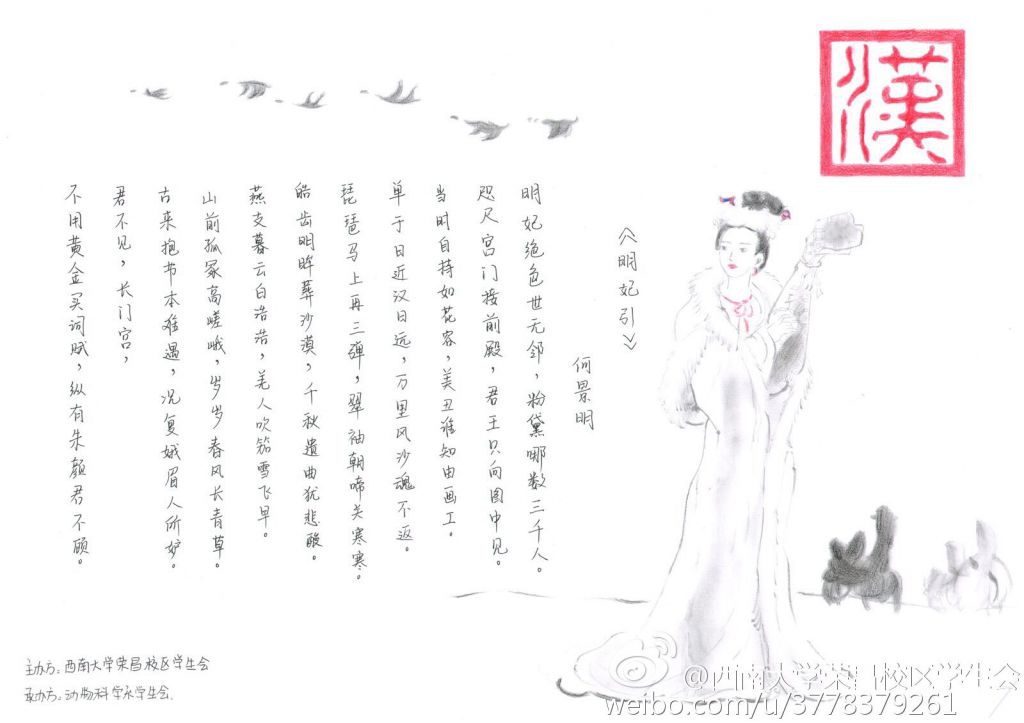 漢
《明妃引》
何景明
明妃绝色世无邻，粉黛哪数三千人。
咫尺宫门接前殿，君王只向图中见。
当时自持如花容，美丑谁知由画工。
单于日近汉日远，万里风沙魂不返。
琵琶马上再三弹，翠袖朝啼关寒寒。
皓齿明眸葬沙漠，千秋遗曲犹悲酸。
燕支暮云白浩浩，羌人吹笳雪飞早。
山前孤冢高嵯峨，岁岁春风长青草。
古来抱节本难遇，况复娥眉人所妒。
君不见，长门宫，
不用黄金买词赋，纵有朱颜君不顾。
主办方：西南大学荣昌校区学生会
承办方：动物科学系学生会.
@西南大学荣昌校区学生会
weibo.com/u/3778379261